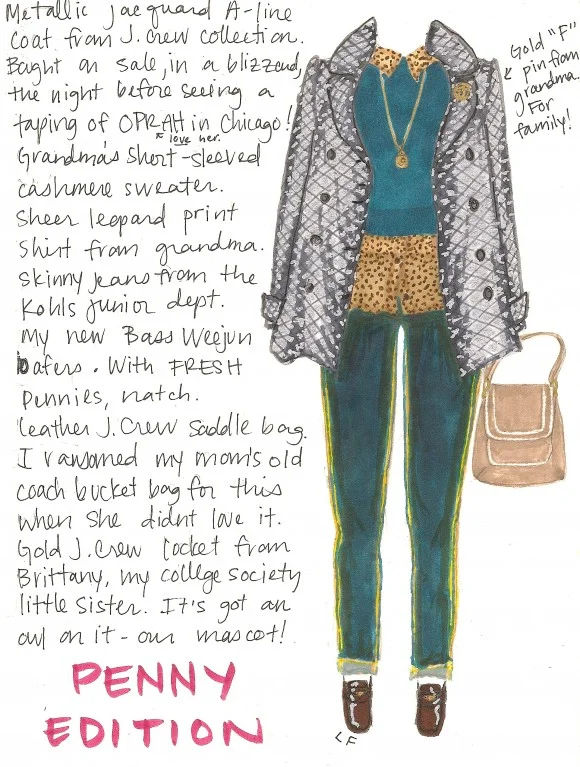 Metallic jacquard A-line
coat from J.crew collection.
Bought on sale, in a blizzard,
the night before seeing a
taping of OPRAH in Chicago!
love her.
Grandma's short-sleeved
cashmere sweater.
Sheer leopard print
shirt from grandma.
Skinny jeans from the
Kohls Junior dept.
My new Bass Weejun
loafers. With FRESH
Pennies, natch.
Leather J.Crew saddle bag.
I ransomed my mom's old
coach bucket bag for this
when she didnt love it.
Gold J.Crew locket from
Brittany, my college society
little sister. It's got an
owl on it - our mascot!
PENNY
EDITION
Gold "F"
pin from
grandma.
For
family!
LF